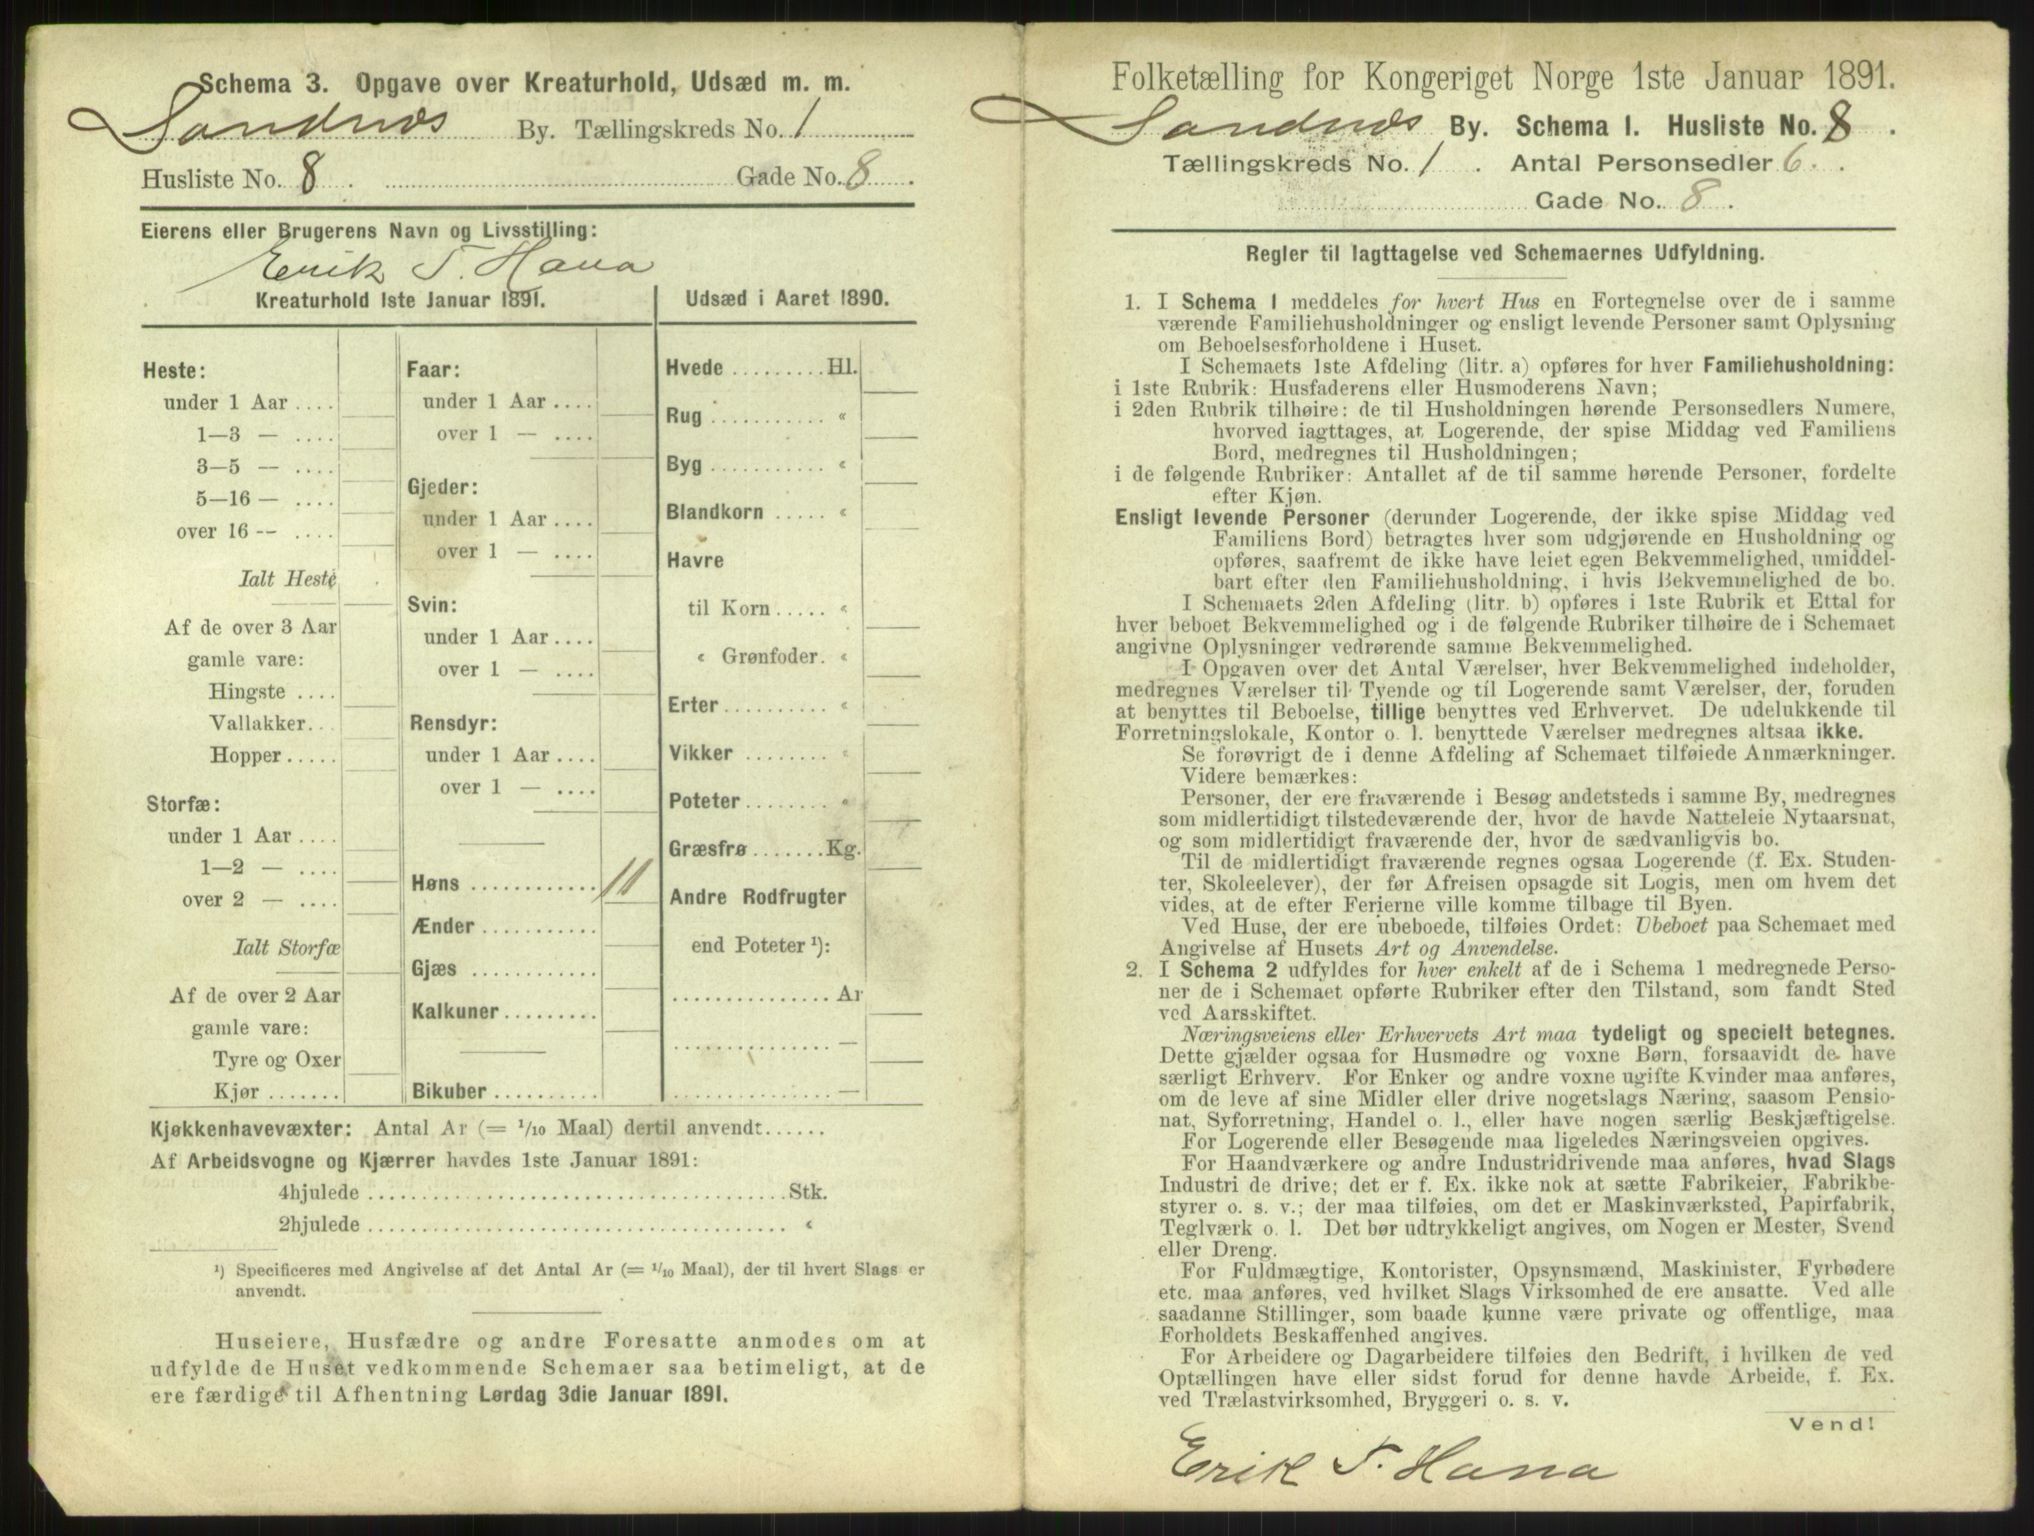 Schema 3. Opgave over Kreaturhold, Udsæd m. m.
Sandnæs By. Tællingskreds No. 1
Husliste No. 8 . Gade No. 8 .
Eierens eller Brugerens Navn og Livsstilling:
Erik T. Hana
Kreaturhold 1ste Januar 1891.
Heste:
under 1 Aar ....
1—3 — ....
3—5 — ....
5—16 — ....
over 16 — ....
Ialt Heste
Af de over 3 Aar
gamle vare:
Hingste ....
Vallakker..
Hopper.....
Storfæ:
under 1 Aar ....
1—2 — ....
over 2 — ....
Ialt Storfæ
Af de over 2 Aar
gamle vare:
Tyre og Oxer
Kjør .......
Faar:
under 1 Aar ....
over 1 — ....
Gjeder:
under 1 Aar ....
over 1 — ....
Svin:
under 1 Aar ....
over 1 — ....
Rensdyr:
under 1 Aar ....
over 1 — ....
Høns ............ 11
Ænder ...........
Gjæs ............
Kalkuner.........
Bikuber ..........
Udsæd i Aaret 1890.
Hvede .........Hl.
Rug ........... «
Byg ........... «
Blandkorn ..... «
Havre
til Korn ..... «
« Grønfoder. «
Erter.......... «
Vikker ........ «
Poteter........ «
Græsfrø .......Kg.
Andre Rodfrugter
end Poteter ¹):
............... Ar
............... —
............... —
Kjøkkenhavevæxter: Antal Ar (= 1/10 Maal) dertil anvendt......
Af Arbeidsvogne og Kjærrer havdes 1ste Januar 1891:
4hjulede ......................................Stk.
2hjulede ...................................... «
¹) Specificeres med Angivelse af det Antal Ar (= 1/10 Maal), der til hvert Slags er
anvendt.
Huseiere, Husfædre og andre Foresatte anmodes om at
udfylde de Huset vedkommende Schemaer saa betimeligt, at de
ere færdige til Afhentning Lørdag 3die Januar 1891.
Folketælling for Kongeriget Norge 1ste Januar 1891.
Sandnæs By. Schema 1. Husliste No. 8 .
Tællingskreds No. 1 . Antal Personsedler 6 .
Gade No. 8 .
Regler til Iagttagelse ved Schemaernes Udfyldning.
1. I Schema 1 meddeles for hvert Hus en Fortegnelse over de i samme
værende Familiehusholdninger og ensligt levende Personer samt Oplysning
om Beboelsesforholdene i Huset.
I Schemaets 1ste Afdeling (litr. a) opføres for hver Familiehusholdning:
i 1ste Rubrik: Husfaderens eller Husmoderens Navn;
i 2den Rubrik tilhøire: de til Husholdningen hørende Personsedlers Numere,
hvorved iagttages, at Logerende, der spise Middag ved Familiens
Bord, medregnes til Husholdningen;
i de følgende Rubriker: Antallet af de til samme hørende Personer, fordelte
efter Kjøn.
Ensligt levende Personer (derunder Logerende, der ikke spise Middag ved
Familiens Bord) betragtes hver som udgjørende en Husholdning og
opføres, saafremt de ikke have leiet egen Bekvemmelighed, umiddel-
bart efter den Familiehusholdning, i hvis Bekvemmelighed de bo.
I Schemaets 2den Afdeling (litr. b) opføres i 1ste Rubrik et Ettal for
hver beboet Bekvemmelighed og i de følgende Rubriker tilhøire de i Schemaet
angivne Oplysninger vedrørende samme Bekvemmelighed.
I Opgaven over det Antal Værelser, hver Bekvemmelighed indeholder,
medregnes Værelser til Tyende og til Logerende samt Værelser, der, foruden
at benyttes til Beboelse, tillige benyttes ved Erhvervet. De udelukkende til
Forretningslokale, Kontor o. l. benyttede Værelser medregnes altsaa ikke.
Se forøvrigt de i denne Afdeling af Schemaet tilføiede Anmærkninger.
Videre bemærkes:
Personer, der ere fraværende i Besøg andetsteds i samme By, medregnes
som midlertidigt tilstedeværende der, hvor de havde Natteleie Nytaarsnat,
og som midlertidigt fraværende der, hvor de sædvanligvis bo.
Til de midlertidigt fraværende regnes ogsaa Logerende (f. Ex. Studen-
ter, Skoleelever), der før Afreisen opsagde sit Logis, men om hvem det
vides, at de efter Ferierne ville komme tilbage til Byen.
Ved Huse, der ere ubeboede, tilføies Ordet: Ubeboet paa Schemaet med
Angivelse af Husets Art og Anvendelse.
2. I Schema 2 udfyldes for hver enkelt af de i Schema 1 medregnede Perso-
ner de i Schemaet opførte Rubriker efter den Tilstand, som fandt Sted
ved Aarsskiftet.
Næringsveiens eller Erhvervets Art maa tydeligt og specielt betegnes.
Dette gjælder ogsaa for Husmødre og voxne Børn, forsaavidt de have
særligt Erhverv. For Enker og andre voxne ugifte Kvinder maa anføres,
om de leve af sine Midler eller drive nogetslags Næring, saasom Pensio-
nat, Syforretning, Handel o. l., eller have nogen særlig Beskjæftigelse.
For Logerende eller Besøgende maa ligeledes Næringsveien opgives.
For Haandværkere og andre Industridrivende maa anføres, hvad Slags
Industri de drive; det er f. Ex. ikke nok at sætte Fabrikeier, Fabrikbe-
styrer o. s. v.; der maa tilføies, om det er Maskinværksted, Papirfabrik,
Teglværk o. l. Det bør udtrykkeligt angives, om Nogen er Mester, Svend
eller Dreng.
For Fuldmægtige, Kontorister, Opsynsmænd, Maskinister, Fyrbødere
etc. maa anføres, ved hvilket Slags Virksomhed de ere ansatte. Ved alle
saadanne Stillinger, som baade kunne være private og offentlige, maa
Forholdets Beskaffenhed angives.
For Arbeidere og Dagarbeidere tilføies den Bedrift, i hvilken de ved
Optællingen have eller sidst forud for denne havde Arbeide, f. Ex.
ved Trælastvirksomhed, Bryggeri o. s. v.
Vend!
Erik T. Hana